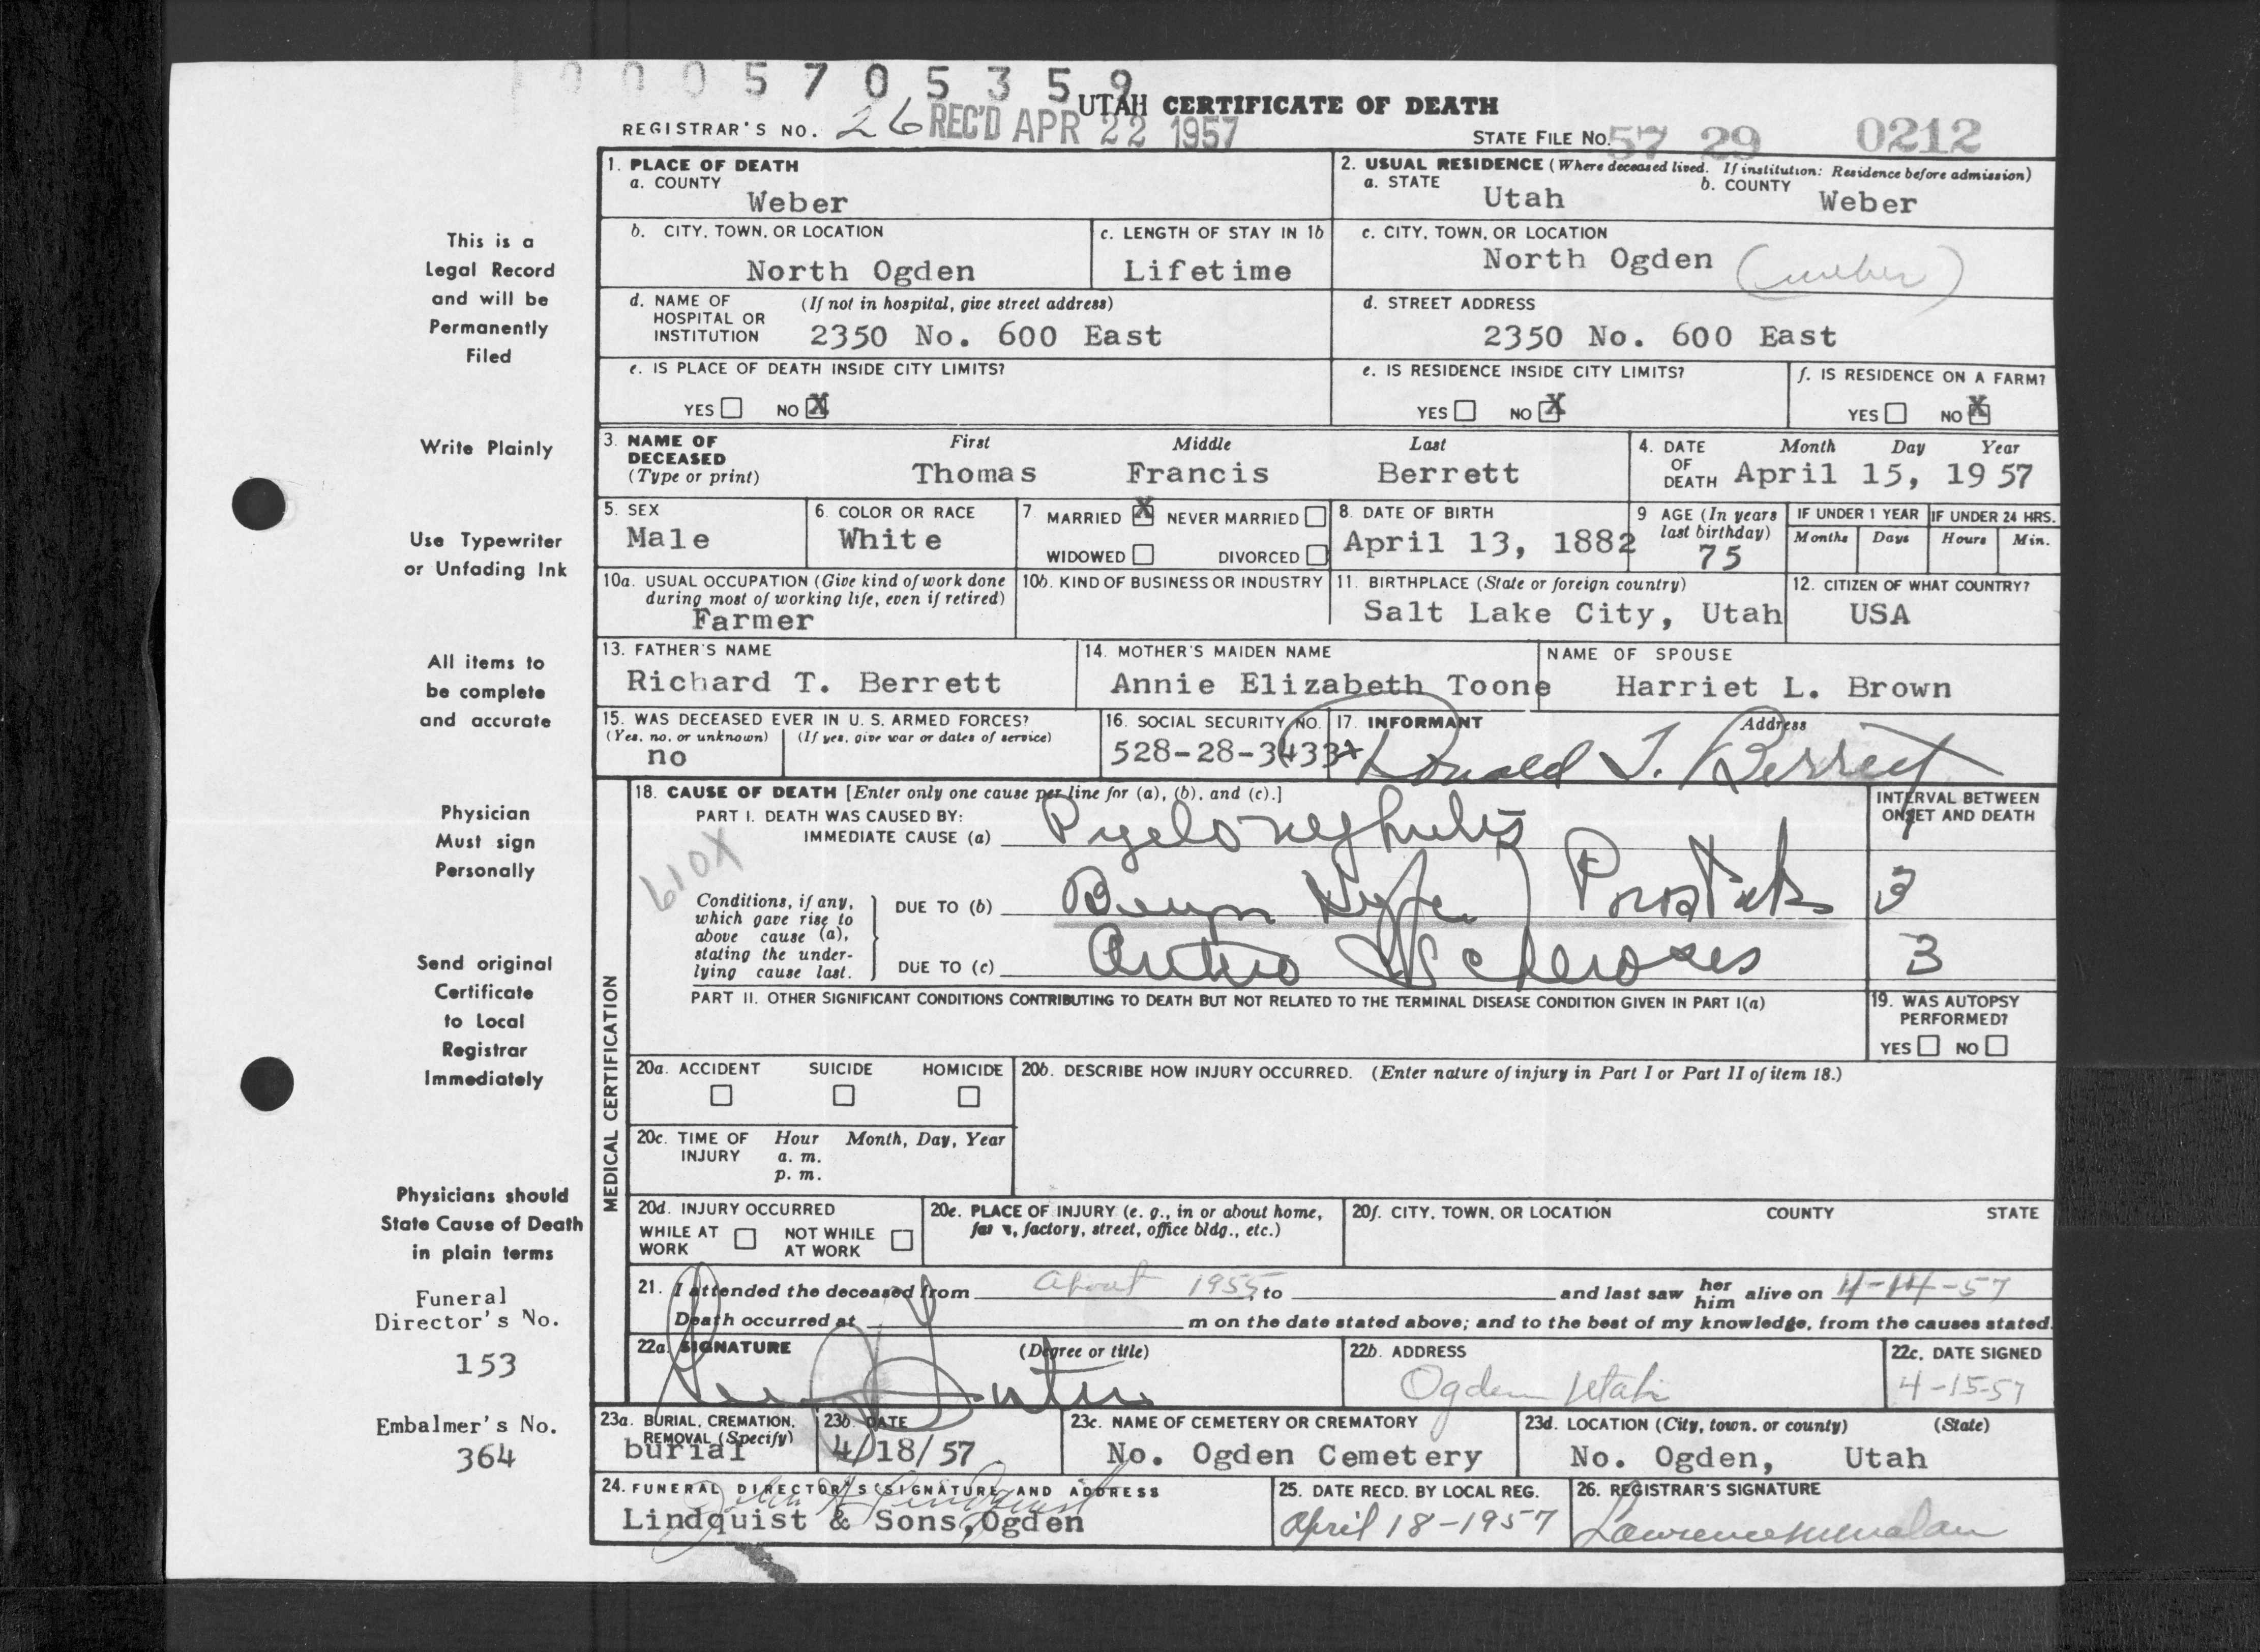 0005705359
UTAH CERTIFICATE OF DEATH
REGISTRAR'S NO. 26 REC'D APR 22 1957
STATE FILE NO. 57 29 0212
1. PLACE OF DEATH
a. COUNTY
Weber
2. USUAL RESIDENCE (Where deceased lived. If institution: Residence before admission)
a. STATE Utah b. COUNTY Weber
b. CITY, TOWN, OR LOCATION
North Ogden
c. LENGTH OF STAY IN 1b
Lifetime
c. CITY, TOWN, OR LOCATION
North Ogden (weber)
d. NAME OF HOSPITAL OR INSTITUTION (If not in hospital, give street address)
2350 No. 600 East
d. STREET ADDRESS
2350 No. 600 East
e. IS PLACE OF DEATH INSIDE CITY LIMITS?
YES NO X
e. IS RESIDENCE INSIDE CITY LIMITS?
YES NO X
f. IS RESIDENCE ON A FARM?
YES NO X
3. NAME OF DECEASED (Type or print)
First Middle Last
Thomas Francis Berrett
4. DATE OF DEATH Month Day Year
April 15, 1957
5. SEX
Male
6. COLOR OR RACE
White
7 MARRIED X NEVER MARRIED
WIDOWED DIVORCED
8. DATE OF BIRTH
April 13, 1882
9 AGE (In years last birthday)
75
IF UNDER 1 YEAR
Months Days
IF UNDER 24 HRS.
Hours Min.
10a. USUAL OCCUPATION (Give kind of work done during most of working life, even if retired)
Farmer
10b. KIND OF BUSINESS OR INDUSTRY
11. BIRTHPLACE (State or foreign country)
Salt Lake City, Utah
12. CITIZEN OF WHAT COUNTRY?
USA
13. FATHER'S NAME
Richard T. Berrett
14. MOTHER'S MAIDEN NAME
Annie Elizabeth Toone
NAME OF SPOUSE
Harriet L. Brown
15. WAS DECEASED EVER IN U. S. ARMED FORCES?
(Yes, no, or unknown) (If yes, give war or dates of service)
no
16. SOCIAL SECURITY NO.
528-28-3433
17. INFORMANT Address
Ronald T. Berrett
MEDICAL CERTIFICATION
18. CAUSE OF DEATH [Enter only one cause per line for (a), (b), and (c).]
PART I. DEATH WAS CAUSED BY:
IMMEDIATE CAUSE (a) Pyelonephritis
INTERVAL BETWEEN ONSET AND DEATH
610X
Conditions, if any, which gave rise to above cause (a), stating the underlying cause last.
DUE TO (b) Benign Hyper Prostate 3
DUE TO (c) Arterio Scleroses 3
PART II. OTHER SIGNIFICANT CONDITIONS CONTRIBUTING TO DEATH BUT NOT RELATED TO THE TERMINAL DISEASE CONDITION GIVEN IN PART I(a)
19. WAS AUTOPSY PERFORMED?
YES NO
20a. ACCIDENT SUICIDE HOMICIDE
20b. DESCRIBE HOW INJURY OCCURRED. (Enter nature of injury in Part I or Part II of item 18.)
20c. TIME OF INJURY Hour Month, Day, Year
a. m.
p. m.
20d. INJURY OCCURRED
WHILE AT WORK NOT WHILE AT WORK
20e. PLACE OF INJURY (e. g., in or about home, farm, factory, street, office bldg., etc.)
20f. CITY, TOWN, OR LOCATION COUNTY STATE
21. I attended the deceased from about 1955, to and last saw her him alive on 4-14-57
Death occurred at m on the date stated above; and to the best of my knowledge, from the causes stated.
22a. SIGNATURE (Degree or title)
22b. ADDRESS
Ogden Utah
22c. DATE SIGNED
4-15-57
23a. BURIAL, CREMATION, REMOVAL (Specify)
burial
23b. DATE
4/18/57
23c. NAME OF CEMETERY OR CREMATORY
No. Ogden Cemetery
23d. LOCATION (City, town, or county) (State)
No. Ogden, Utah
24. FUNERAL DIRECTOR'S SIGNATURE AND ADDRESS
Lindquist & Sons, Ogden
25. DATE RECD. BY LOCAL REG.
April 18-1957
26. REGISTRAR'S SIGNATURE
This is a
Legal Record
and will be
Permanently
Filed
Write Plainly
Use Typewriter
or Unfading Ink
All items to
be complete
and accurate
Physician
Must sign
Personally
Send original
Certificate
to Local
Registrar
Immediately
Physicians should
State Cause of Death
in plain terms
Funeral
Director's No.
153
Embalmer's No.
364